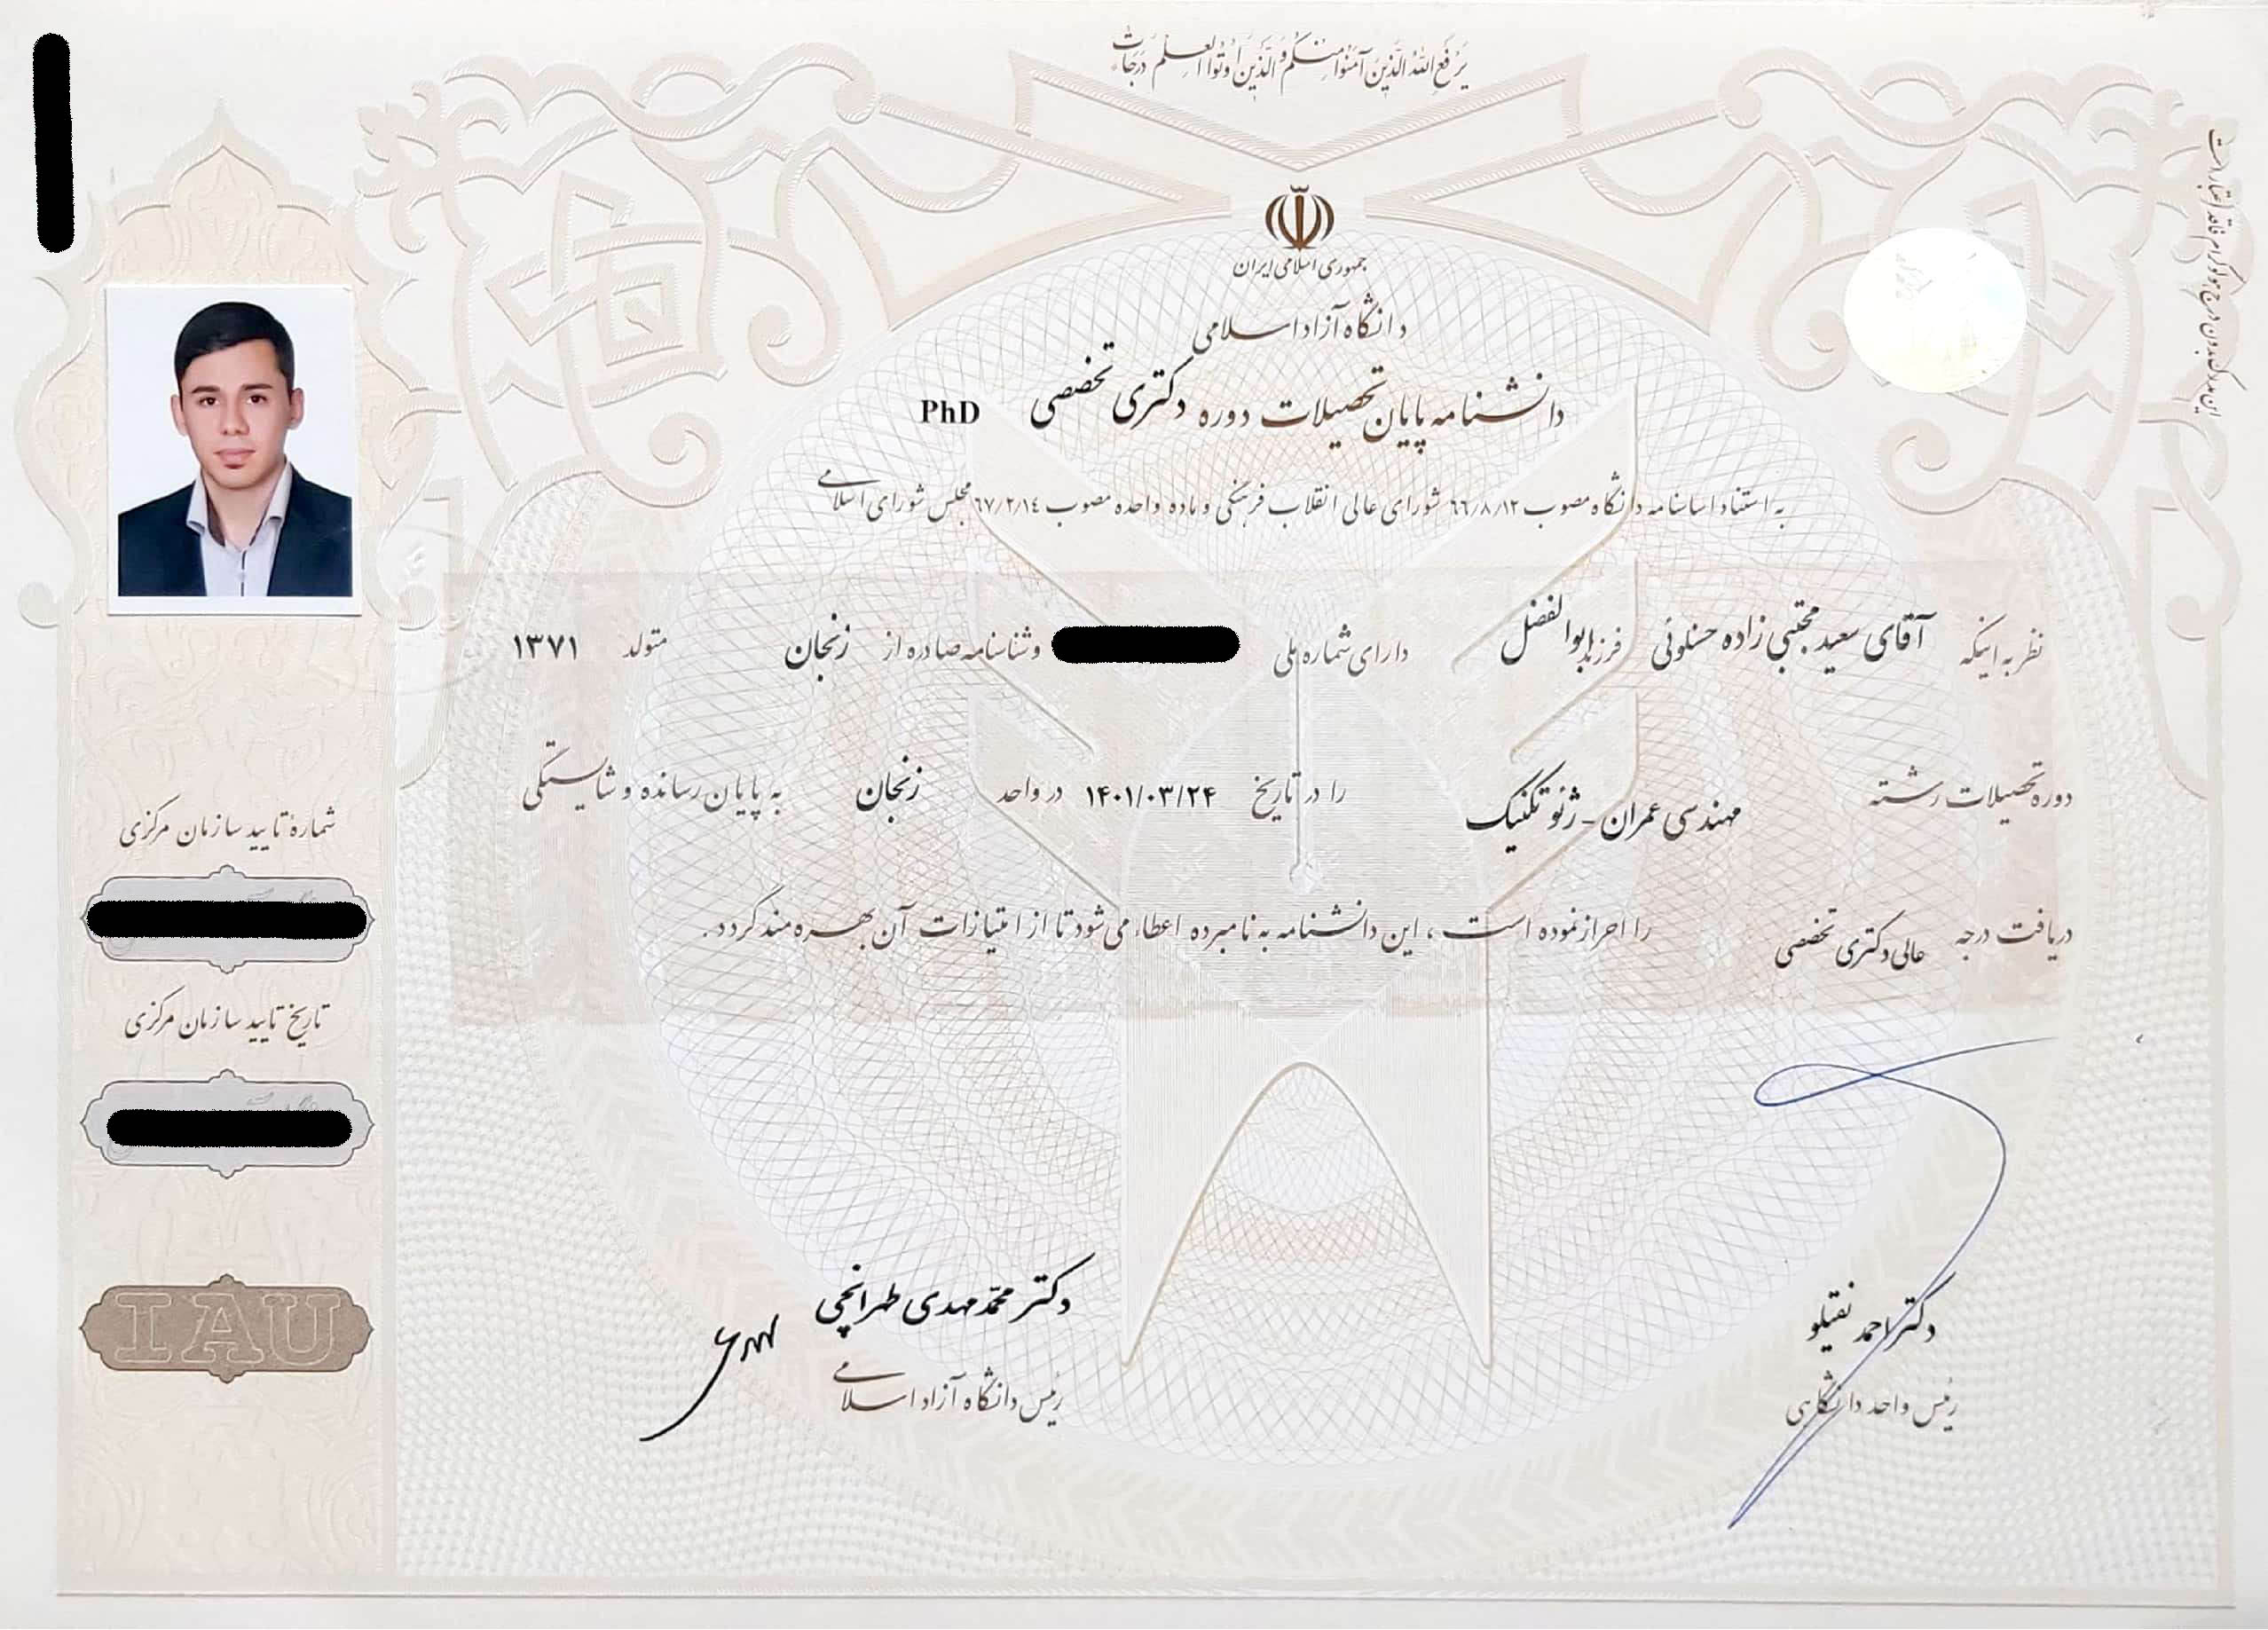 یَرْفَعِ اللهُ الَّذینَ آمَنُوا مِنْکُمْ وَ الَّذینَ اُوتُوا الْعِلْمَ دَرَجات
جمهوری اسلامی ایران
دانشگاه آزاد اسلامی
دانشنامه پایان تحصیلات دوره دکتری تخصصی PhD
به استناد اساسنامه دانشگاه مصوب ٦٦/٨/١٢ شورای عالی انقلاب فرهنگی و ماده واحده مصوب ٦٧/٢/١٤ مجلس شورای اسلامی
نظر به اینکه آقای سعید مجتبی زاده حسنلوئی فرزند ابوالفضل دارای شماره ملی وشناسنامه صادره از زنجان متولد ۱۳۷۱
دوره تحصیلات رشته مهندسی عمران - ژئوتکنیک را در تاریخ ۱۴۰۱/۰۳/۲۴ در واحد زنجان به پایان رسانده و شایستگی
دریافت درجه عالی دکتری تخصصی را احراز نموده است ، این دانشنامه به نامبرده اعطاء می شود تا از امتیازات آن بهره مند گردد.
دکتر احمد نقیلو
رئیس واحد دانشگاهی
دکتر محمّدمهدی طهرانچی
رئیس دانشگاه آزاد اسلامی
شمارهٔ تایید سازمان مرکزی
تاریخ تایید سازمان مرکزی
IAU
این مدرک بدون درج هولوگرام فاقد اعتبار است